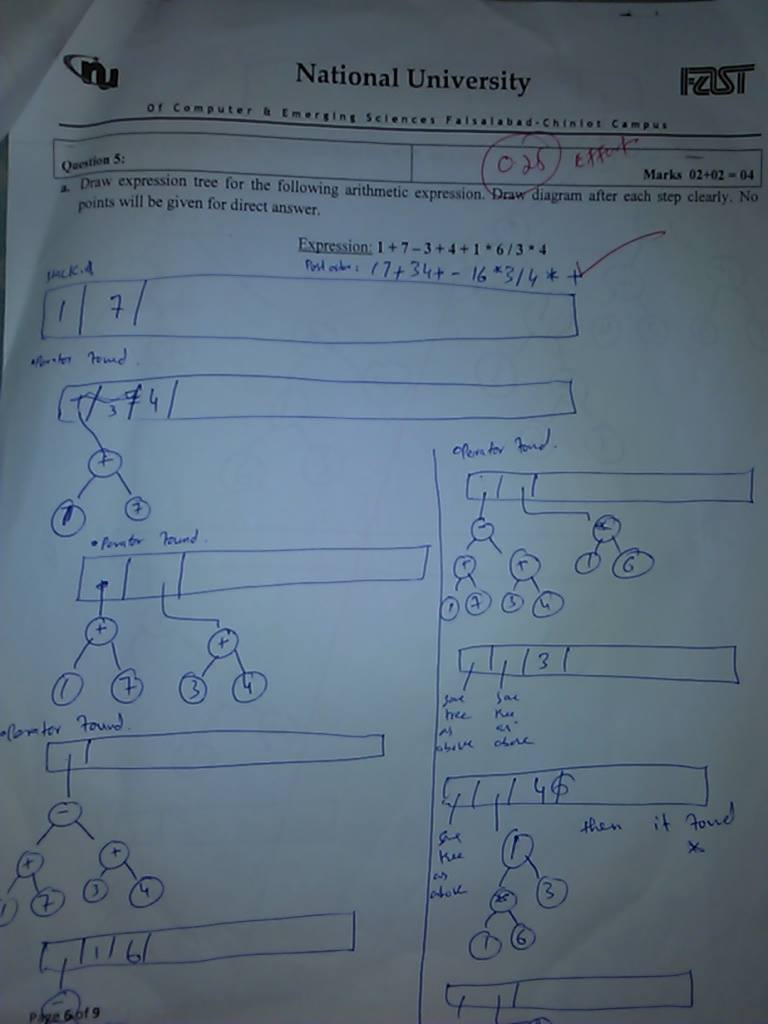 nu
National University
FAST
Of Computer & Emerging Sciences Faisalabad-Chiniot Campus
Question 5:
0.25 Effort
Marks 02+02 = 04
a. Draw expression tree for the following arithmetic expression. Draw diagram after each step clearly. No
points will be given for direct answer.
Expression: 1 + 7 – 3 + 4 + 1 * 6 / 3 * 4
Post order: 17+34+- 16*3/4*+
1 7
operator found.
3 4
+
1 7
operator found.
+ +
1 7 3 4
operator found.
-
+ +
1 7 3 4
1 6
-
Page 6 of 9
operator found.
- *
+ + 1 6
1 7 3 4
3
same same
tree tree
as as
above above
4
then it found
*
same
tree
as
above
/
* 3
1 6